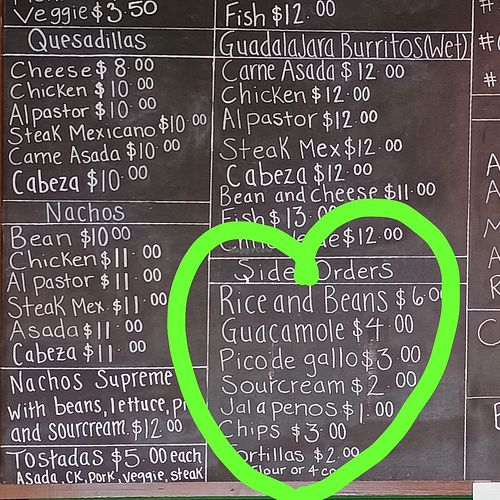 Veggie $3.50
Quesadillas
Cheese $ 8.00
Chicken $10.00
Al pastor $10.00
Steak Mexicano $10.00
Carne Asada $10.00
Cabeza $10.00
Nachos
Bean $10.00
Chicken $11.00
Al pastor $11.00
Steak Mex $11.00
Asada $11.00
Cabeza $11.00
Nachos Supreme
with beans, lettuce,
and sourcream. $12.00
Tostadas $5.00 each
Asada, CK, pork, veggie, steak
Fish $12.00
Guadalajara Burritos (wet)
Carne Asada $12.00
Chicken $12.00
Al pastor $12.00
Steak Mex $12.00
Cabeza $12.00
Bean and cheese $11.00
Fish $13.00
$12.00
Side Orders
Rice and Beans $6.00
Guacamole $4.00
Pico de gallo $3.00
Sourcream $2.00
Jalapenos $1.00
Chips $3.00
Tortillas $2.00
Flour or 4